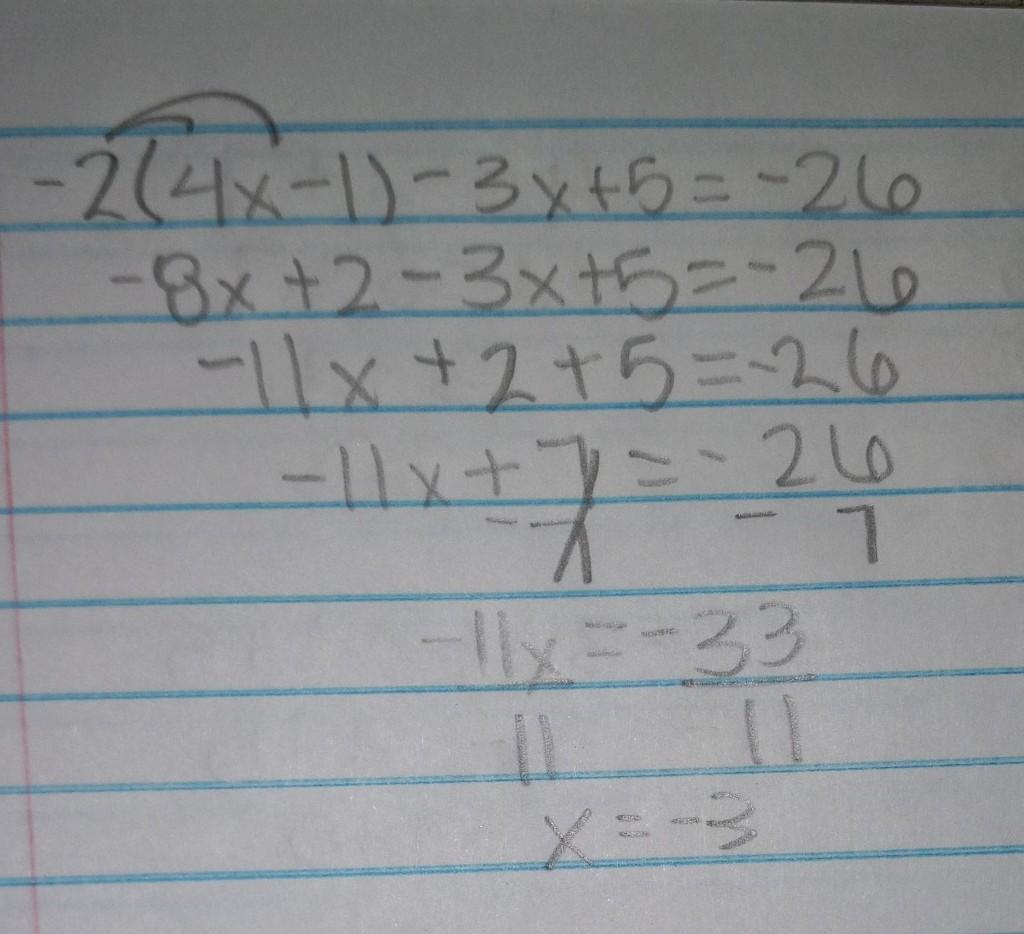 -2(4x-1)-3x+5=-26
-8x+2-3x+5=-26
-11x+2+5=-26
-11x+7=-26
-7 -7
-11x=-33
11 11
x=-3